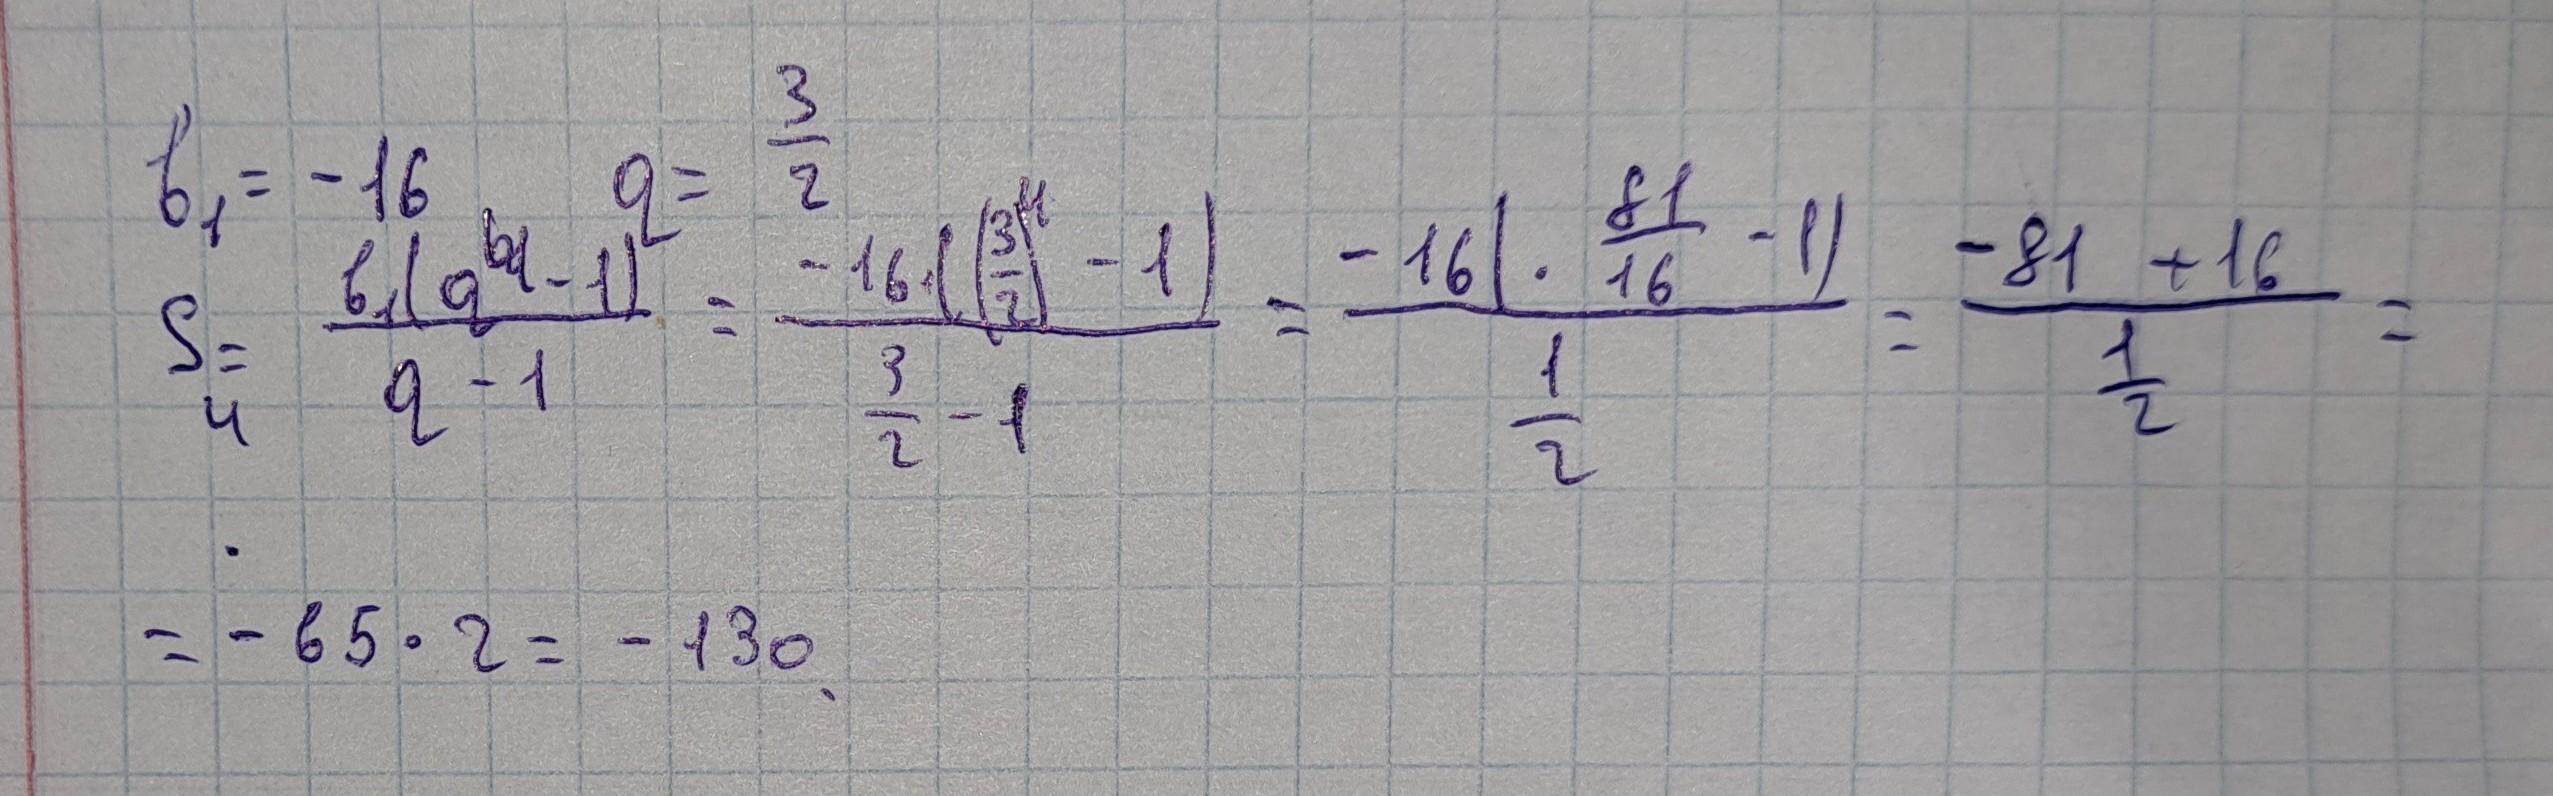 b₁ = -16 q = 3/2
S₄ = b₁(q⁴ - 1)/(q - 1) = -16·((3/2)⁴ - 1)/(3/2 - 1) = -16(· 81/16 - 1)/(1/2) = (-81 + 16)/(1/2) =
= - 65 · 2 = - 130.